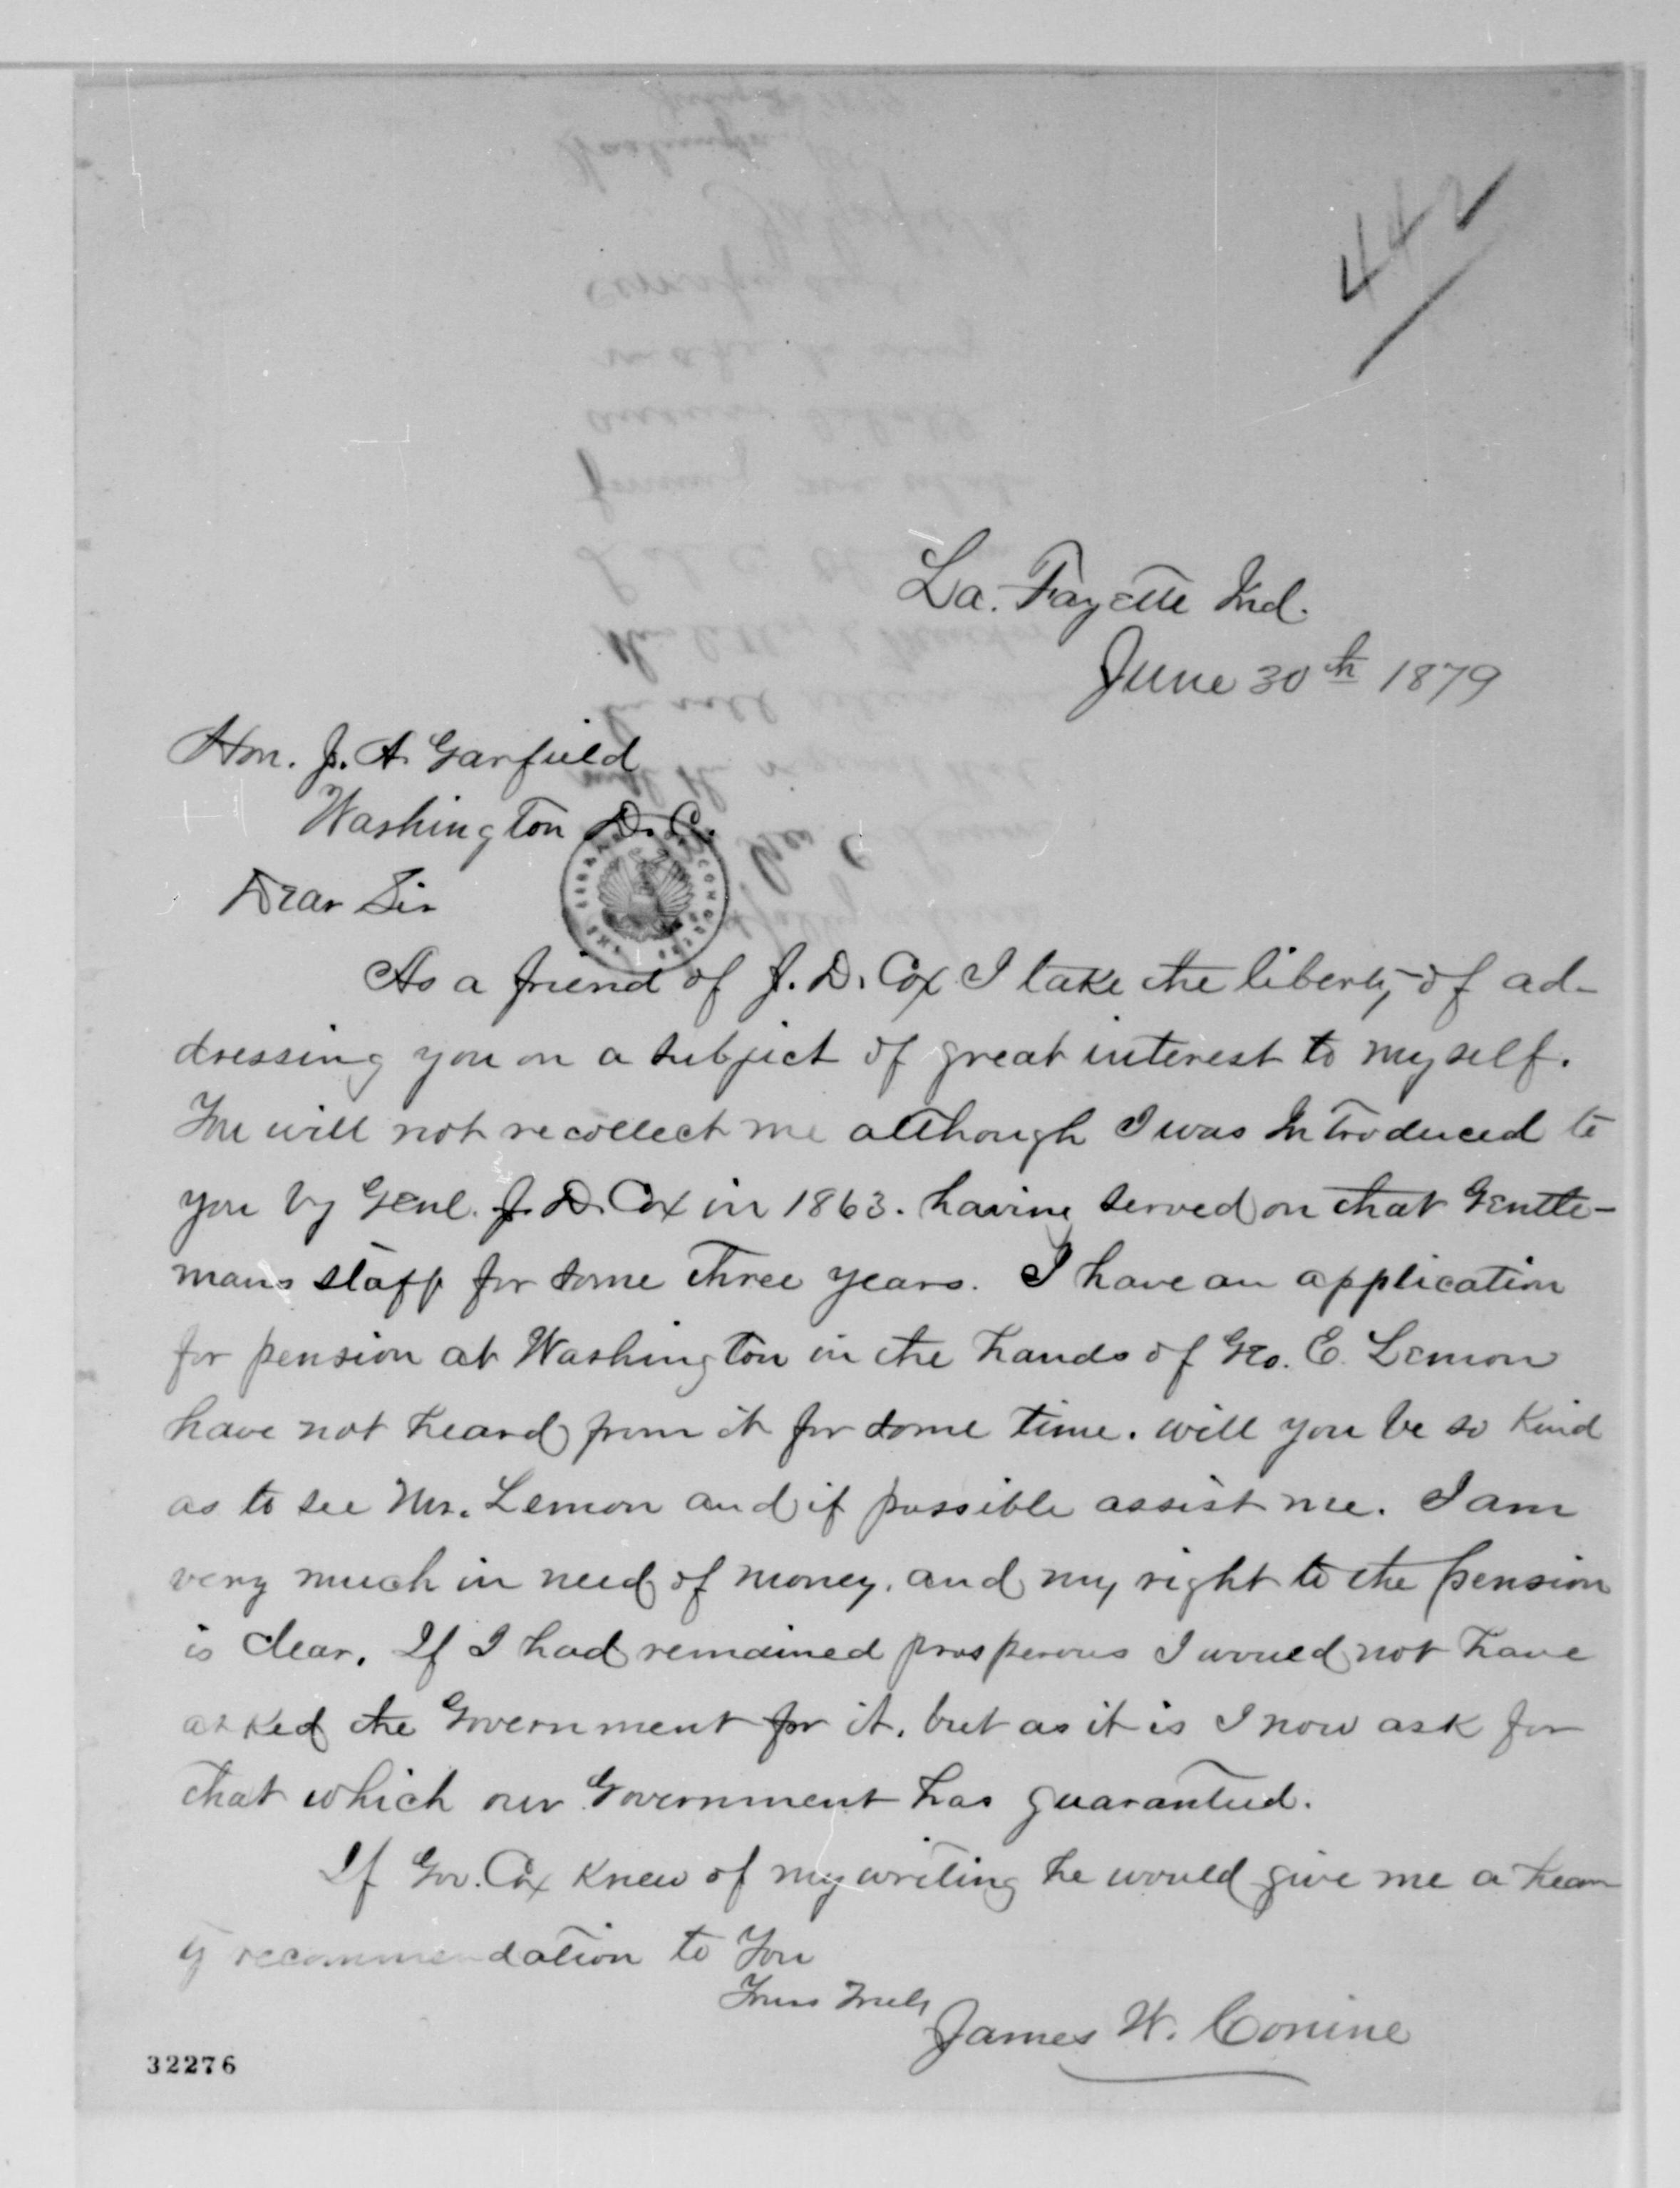 442
La. Fayette Ind.
June 30th 1879
Hon. J. A. Garfield
Washington D. C.
Dear Sir
As a friend of J. D. Cox I take the liberty of ad-
dressing you on a subject of great interest to myself.
You will not recollect me although I was Introduced to
you by Genl. J. D. Cox in 1863. having served on that Gentle-
mans staff for some three years. I have an application
for pension at Washington in the hands of Geo. E. Lemon
have not heard from it for some time. will you be so Kind
as to see Mr. Lemon and if possible assist me. I am
very much in need of money. and my right to the pension
is clear. If I had remained prosperous I would not have
asked the Government for it. but as it is I now ask for
that which our Government has guaranteed.
If Gov. Cox knew of my writing he would give me a hear
ty recommendation to You
Yours Truly
James W. Conine
32276
THE LIBRARY OF CONGRESS